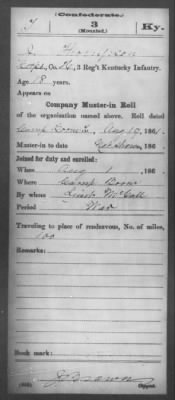 (Confederate.)
3
(Mounted.)
Ky.
J. Thompson
Capt, Co. H, 3 Reg't Kentucky Infantry.
Age 18 years.
Appears on
Company Muster-in Roll
of the organization named above. Roll dated
Camp Boone, Aug 19, 1861.
Muster-in to date Not shown, 186 .
Joined for duty and enrolled:
When Aug 1, 186 .
Where Camp Boone
By whom Lieut McCall
Period War
Traveling to place of rendezvous, No. of miles,
100
Remarks:
Book mark:
J Brown
Copyist.